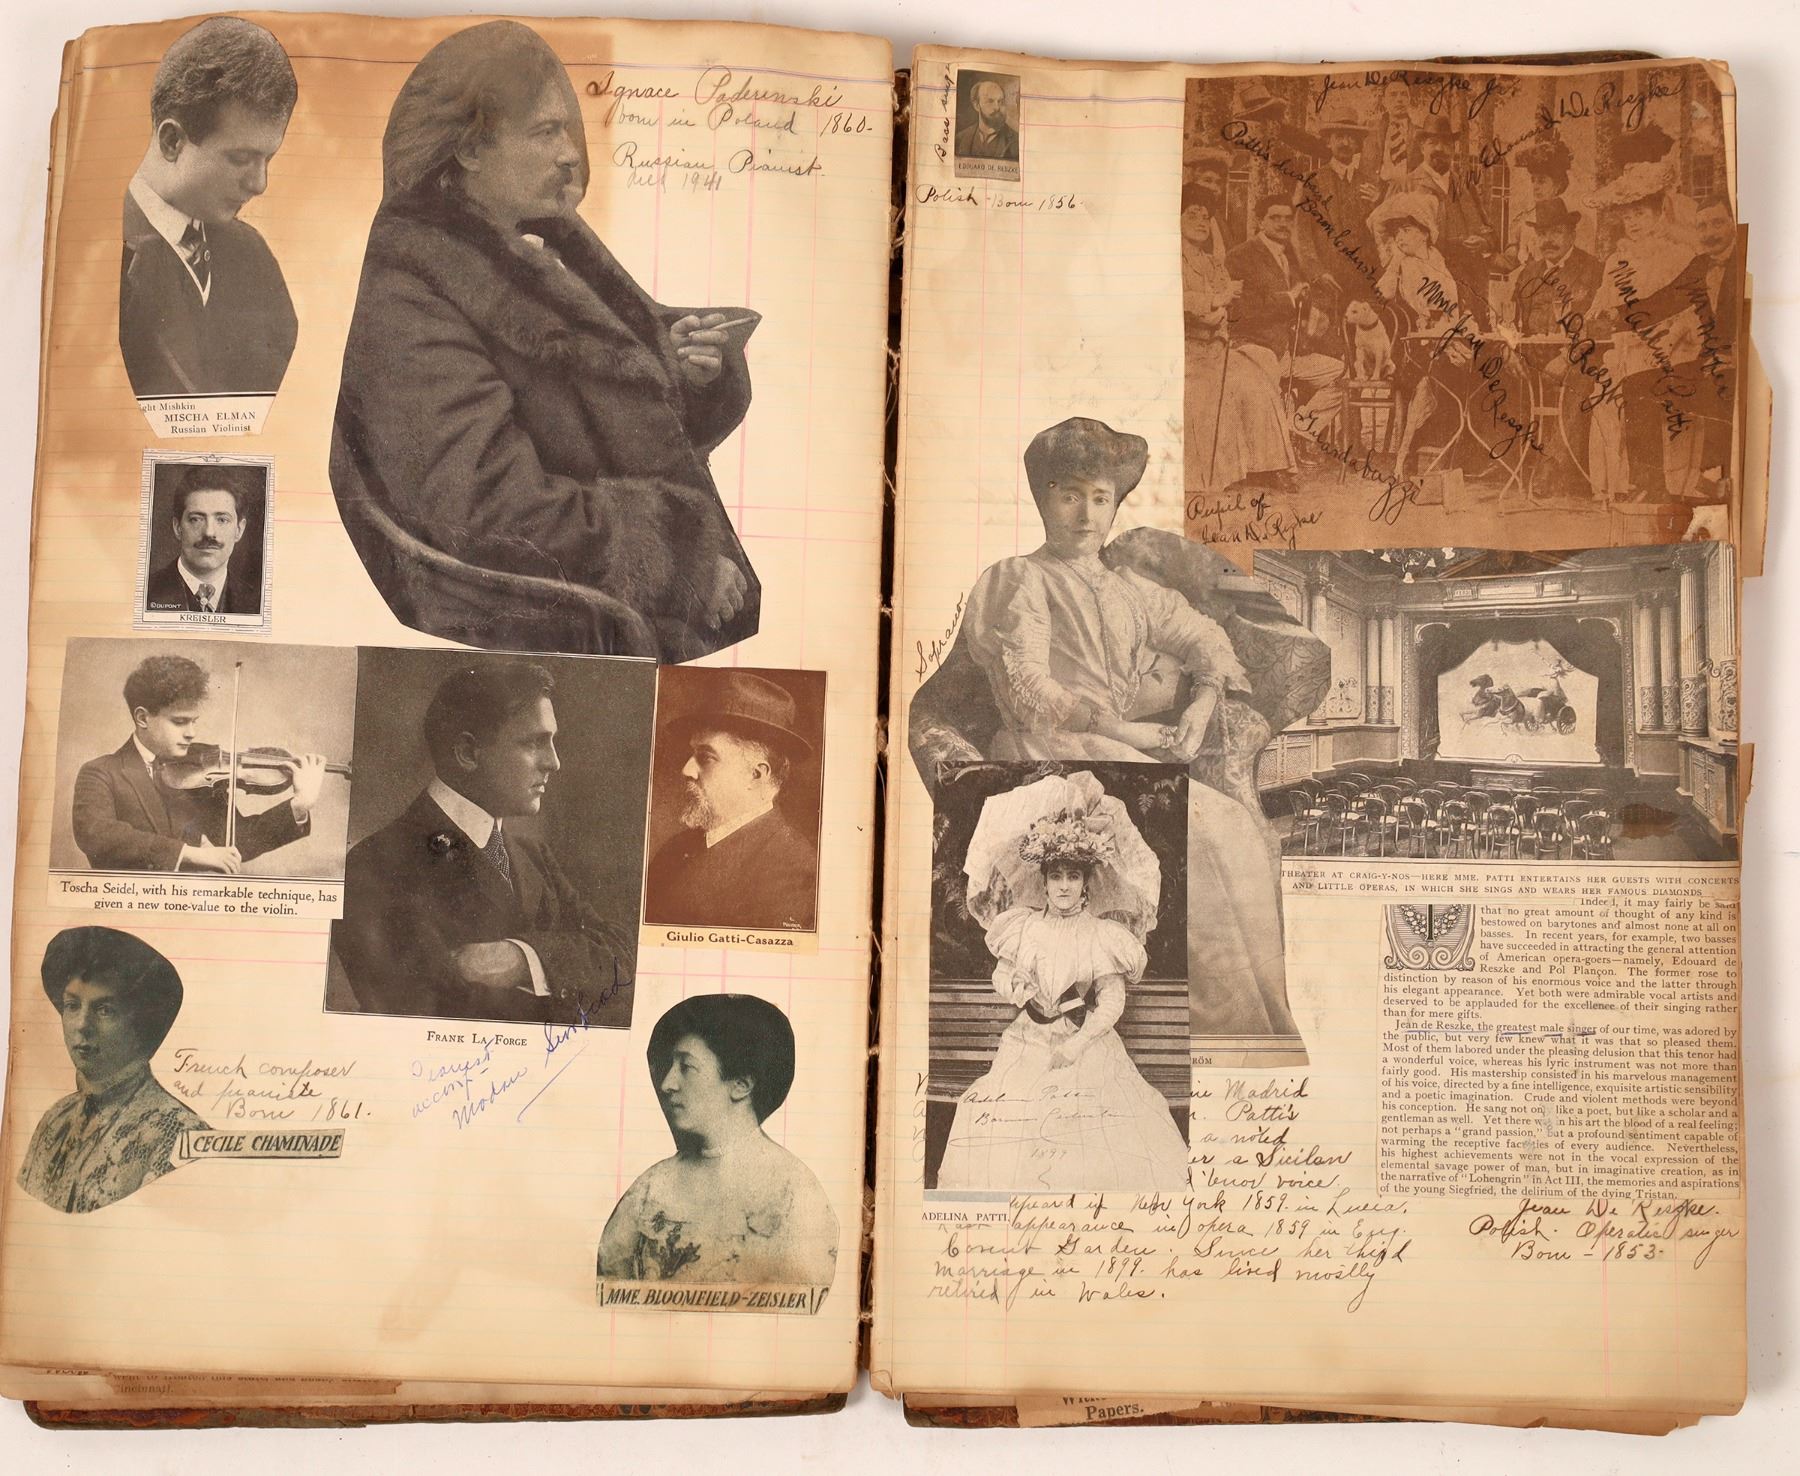 Ignace Paderinski
born in Poland 1860-
Russian Pianist.
died 1941
ght Mishkin
MISCHA ELMAN
Russian Violinist
©DUPONT
KREISLER
Toscha Seidel, with his remarkable technique, has
given a new tone-value to the violin.
FRANK LA FORGE
Giulio Gatti-Casazza
French composer
and pianiste
Born 1861.
CECILE CHAMINADE
MME. BLOOMFIELD-ZEISLER
went to
cincinnati.
Bass singer
EDOUARD DE RESZKE
Polish - Born 1856-
Jean De Reszke Jr.
Edouard De Reszke
Patti's husband
Mme Jean De Reszke
Jean De Reszke
Mme Adelina Patti
Pupil of
Jean De Reszke
Soprano
THEATER AT CRAIG-Y-NOS—HERE MME. PATTI ENTERTAINS HER GUESTS WITH CONCERTS
AND LITTLE OPERAS, IN WHICH SHE SINGS AND WEARS HER FAMOUS DIAMONDS
Indeed, it may fairly be said
that no great amount of thought of any kind is
bestowed on barytones and almost none at all on
basses. In recent years, for example, two basses
have succeeded in attracting the general attention
of American opera-goers—namely, Edouard de
Reszke and Pol Plançon. The former rose to
distinction by reason of his enormous voice and the latter through
his elegant appearance. Yet both were admirable vocal artists and
deserved to be applauded for the excellence of their singing rather
than for mere gifts.
Jean de Reszke, the greatest male singer of our time, was adored by
the public, but very few knew what it was that so pleased them.
Most of them labored under the pleasing delusion that this tenor had
a wonderful voice, whereas his lyric instrument was not more than
fairly good. His mastership consisted in his marvelous management
of his voice, directed by a fine intelligence, exquisite artistic sensibility
and a poetic imagination. Crude and violent methods were beyond
his conception. He sang not only like a poet, but like a scholar and a
gentleman as well. Yet there was in his art the blood of a real feeling;
not perhaps a "grand passion," but a profound sentiment capable of
warming the receptive faculties of every audience. Nevertheless,
his highest achievements were not in the vocal expression of the
elemental savage power of man, but in imaginative creation, as in
the narrative of "Lohengrin" in Act III, the memories and aspirations
of the young Siegfried, the delirium of the dying Tristan.
Jean De Reszke.
Polish. Operatic singer
Born - 1853-
RÖM
Adelina Patti
1899
ADELINA PATTI
in Madrid
Patti's
a noted
er a Sicilan
tenor voice.
in New York 1859. in Lucia.
appearance in opera 1859 in Eng.
Covent Garden. Since her third
marriage in 1899. has lived mostly
retired in Wales.
Papers.